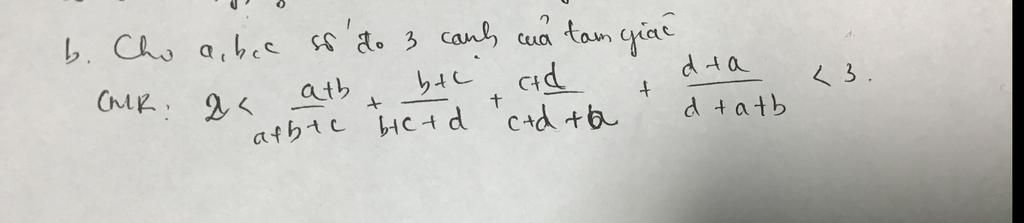 b. Cho a,b,c số đo 3 cạnh của tam giác
CMR: 2 < \frac{a+b}{a+b+c} + \frac{b+c}{b+c+d} + \frac{c+d}{c+d+a} + \frac{d+a}{d+a+b} < 3.